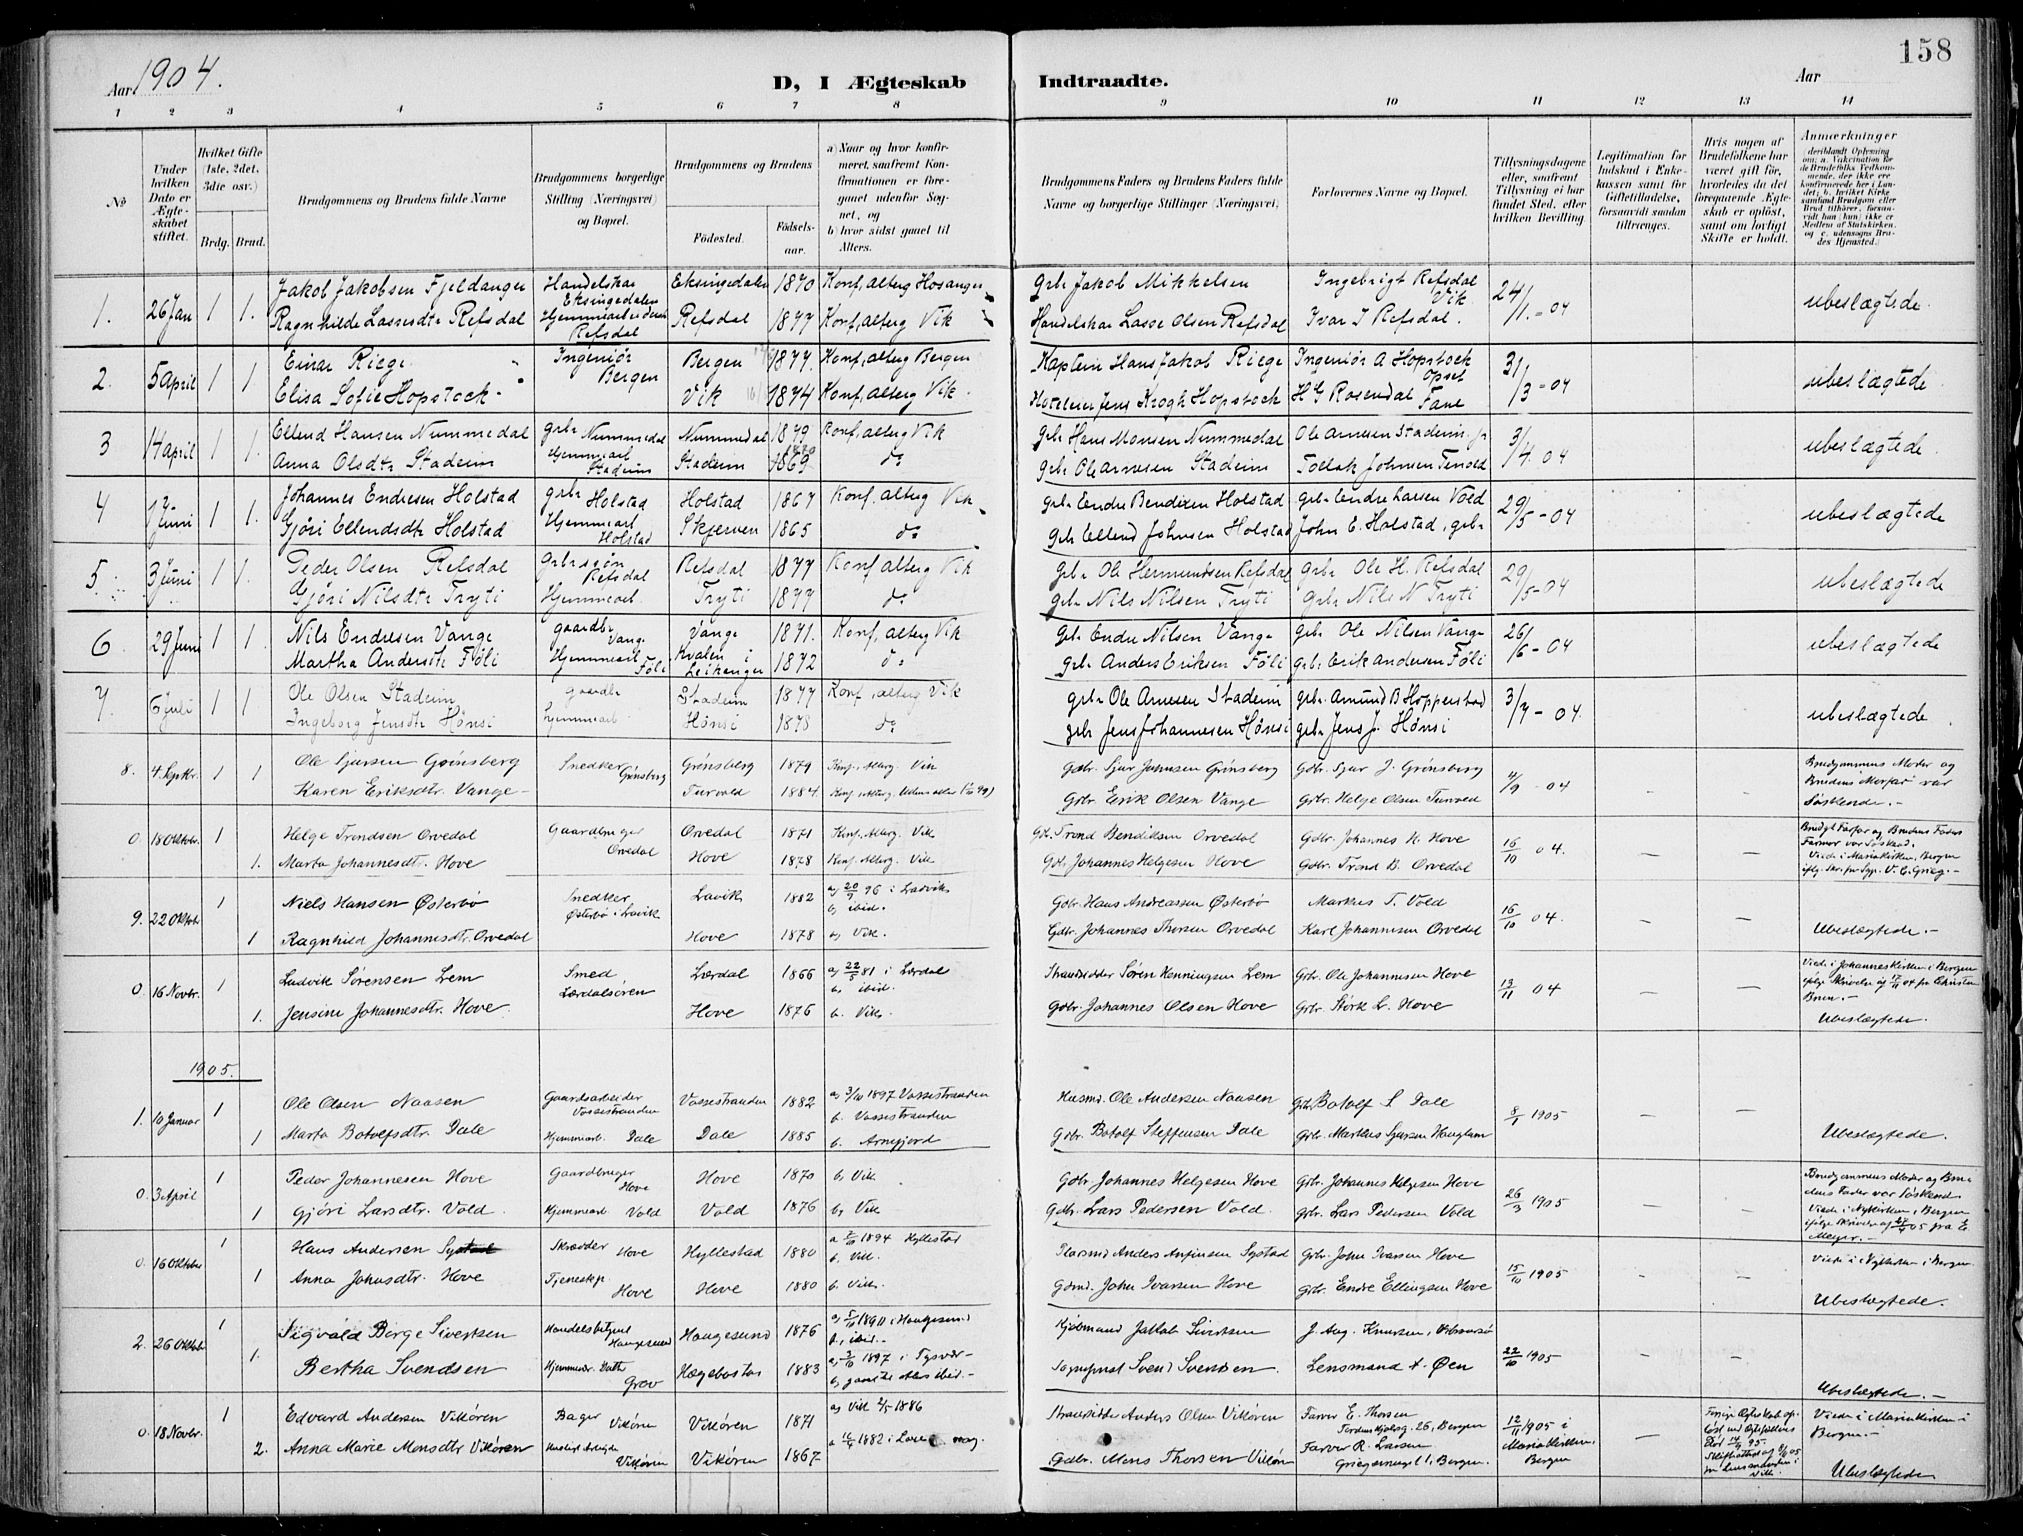 158
Aar 1904.
D, I Ægteskab Indtraadte.
Aar
1 2 3 4 5 6 7 8 9 10 11 12 13 14
No
Under hvilken Dato er Ægteskabet stiftet.
Hvilket Gifte (1ste, 2det, 3die osv.)
Brdg. Brud.
Brudgommens og Brudens fulde Navne
Brudgommens borgerlige Stilling (Næringsvei) og Bopæl.
Brudgommens og Brudens
Fødested. Fødselsaar.
a) Naar og hvor konfirmeret, saafremt Konfirmationen er foregaaet udenfor Sognet, og
b) hvor sidst gaaet til Alters.
Brudgommens Faders og Brudens Faders fulde Navne og borgerlige Stillinger (Næringsvei)
Forlovernes Navne og Bopæl.
Tillysningsdagene eller, saafremt Tillysning ei har fundet Sted, efter hvilken Bevilling.
Legitimation for Indskud i Enkekassen samt for Giftetilladelse, forsaavidt saadan tiltrænges.
Hvis nogen af Brudefolkene har været gift før, hvorledes da det foregaaende Ægteskab er opløst, samt om lovligt Skifte er holdt.
Anmærkninger deriblandt Oplysning om: a. Vakcination for de Brudefolks Vedkommende, der ikke ere konfirmerede her i Landet; b. hvilket Kirkesamfund Brudgom eller Brud tilhører, forsaavidt han (hun) ikke er Medlem af Statskirken, og c. udensogns Brudes Hjemsted.)
1. 26 Jan 1 1. Jakob Jakobsen Fjeldanger Handelskar Eksingedalen Eksingedalen 1870 Konf, alterg Hosanger Gbr Jakob Mikkelsen Ingebrigt Refsdal Vik 24/1. - 04 ubeslægtede
Ragnhilde Lassesdtr Refsdal Hjemmearbeidende Refsdal Refsdal 1877 Konf, alterg Vik Handelskar Lasse Olsen Refsdal Ivar I Refsdal.
2. 5 April 1 1. Einar Riege Ingeniør Bergen Bergen 1877. Konf, alterg Bergen Kaptein Hans Jakob Riege Ingeniør A Hopstock Opset 31/3 - 04 ubeslægtede
Elisa Sofie Hopstock Vik 1874 Konf, alterg Vik Hoteleier Jens Krogh Hopstock H G Rosendal Fane
3 14 April 1 1. Ellend Hansen Nummedal gbr Nummedal Nummedal 1879 Konf, alterg Vik Gbr Hans Monsen Nummedal Ole Arnesen Stadeim jr 3/4. 04 ubeslægtede
Anna Olsdtr Stadeim Hjemmearb Stadeim Stadeim 1869 do Gbr Ole Arnesen Stadeim Tollak Johnsen Tenold
4 1 Juni 1 1. Johannes Endresen Holstad gbr Holstad Holstad 1867 Konf, alterg Vik Gbr Endre Bendixen Holstad Gbr Endre Larsen Vold 29/5 - 04 ubeslægtede
Gjøri Ellendsdtr Holstad Hjemmearb Holstad Skjerven 1865 do Gbr Ellend Johnsen Holstad John E. Holstad, gbr
5 3 Juni 1 1. Peder Olsen Refsdal Gbrssøn Refsdal Refsdal 1877 Konf alterg Vik Gbr Ole Hermundsen Refsdal Gbr Ole H. Refsdal 29/5 - 04 ubeslægtede
Gjøri Nilsdtr Tryti Hjemmearb Tryti 1877 do Gbr Nils Nilsen Tryti Gbr Nils N Tryti
6 29 Juni 1 1. Nils Endresen Vange gaardbr Vange Vange 1871. Konf, alterg Vik Gbr Endre Nilsen Vange Gbr Ole Nilsen Vange 26/6 - 04 ubeslægtede
Martha Andersdtr Føli Hjemmearb Føli Kvalen i Leikanger 1872 do Gbr Anders Eriksen Føli Gbr Erik Andersen Føli
7. 6 Juli 1 1 Ole Olsen Stadeim gaardbr Stadeim 1877 Konf, alterg Vik Gbr Ole Arnesen Stadeim Gbr Amund B Hopperstad 3/7 - 04. ubeslægtede
Ingeborg Jensdtr Hønsi Hjemmearb Hønsi 1878 do gbr Jens Johannesen Hønsi gbr Jens J. Hønsi
8. 4. Septbr. 1 1 Ole Sjursen Grønsberg Snedker Grønsberg Grønsberg 1879 Konf, Alterg. Vik Gdbr. Sjur Johnsen Grønsberg Gdbr. Sjur J. Grønsberg 4/9 - 04 - - Brudgommens Moder og Brudens Morfar var Søskende. -
Karen Eriksdtr. Vange - Turvold 1884 Konf, Alterg. Gdbr. Erik Olsen Vange Gdbr. Helge Olsen Turvold
0. 18 Oktober 1 Helge Trondsen Orvedal Gaardbruger Orvedal Orvedal 1871 Konf, Alterg. Vik Gbr. Trond Bendiksen Orvedal Gdbr. Johannes H. Hove 16/10 04. - - Brudgs Farfar og Brudens Faders Farmor var Søskend. Viede i Mariakirken, Bergen
1. Marta Johannesdtr. Hove Hove 1878 Konf, Alterg. Vik Gdbr. Johannes Helgesen Hove Gdbr. Trond B. Orvedal
9. 22 Oktober 1 Niels Hansen Østerbø Snedker Østerbø i Lavik Lavik 1882 a) 20/9 96 i Ladvik b) ibid. Gdbr. Hans Andreassen Østerbø Markus T. Vold 16/10 04 - - Ubeslægtede. -
1 Ragnhild Johannesdtr. Orvedal Hove 1878 b) Vik. Gdbr. Johannes Thorsen Orvedal Karl Johannesen Orvedal
0. 16 Novbr. 1 Ludvik Sørensen Lem Smed Lærdalsøren Lærdal 1866 a) 22/5 81 i Lærdal b. ibid. Strandsidder Søren Henningsen Lem Gdbr. Ole Johannesen Hove 13/11 04 - - Viede i Johanneskirken i Bergen ifølge Skrivelse af 17/11 04 fra Christian Bruun. - Ubeslægtede.
1. Jensine Johannesdtr. Hove Hove 1876 b. Vik. Gdbr. Johannes Olsen Hove Gdbr. Størk L. Hove
1905.
1. 10 Januar 1 Ole Olsen Naasen Gaardsarbeider Vossestranden Vossestranden 1882 a) 3/10 1897 Vossestranden b. Vossestranden Husmd. Ole Andersen Naasen Gdbr. Botolf S. Dale 8/1 1905 - - Ubeslægtede.
1 Marta Botolfsdtr. Dale Hjemmearb. Dale Dale 1885 b. Arnefjord Gdbr. Botolf Steffensen Dale Gdbr. Markus Sjursen Haugum
0. 3 April 1 Peder Johannesen Hove Gaardbruger Hove Hove 1870 b) Vik Gdbr. Johannes Helgesen Hove Gdbr. Johannes Helgesen Hove 26/3 1905 - - Brudgommens Moder og Brudens Fader var Søskend. Viede i Nykirken, Bergen ifølge Skrivelse af 05 fra E. Meyer. -
1 Gjøri Larsdtr. Vold Hjemmearb. Vold Vold 1876 b) Vik Gdbr. Lars Pedersen Vold. Gdbr. Lars Pedersen Vold
0. 16 Oktober 1 Hans Andersen Systad Skrædder Hove Hyllestad 1880 1894 Hyllestad b. Vik. Husmd Anders Anfinsen Systad Gdbr. John Ivarsen Hove 15/10 1905 - - Viede i Nykirken i Bergen. Ubeslægtede.
1 Anna Johnsdtr. Hove Tjenestep. Hove Hove 1880 b. Vik. Gdmd. John Ivarsen Hove Gdbr. Endre Ellingsen Hove
2. 26 Oktober 1 Sigvald Børge Sivertsen Handelsbetjent Haugesund Haugesund 1876 a) 5/10 1890 i Haugesund b, ibid. - Kjøbmand Jakob Sivertsen J. Aug. Knutsen, 22/10 1905 - - Ubeslægtede. -
1. Bertha Svendsen Hjemmevær. Datt. Grov Hægebostad 1883 a) 3/10 1897 i Tysvær - Sogneprest Svend Svendsen Lensmand A. Øen
0. 18 Novbr. 1 Edvard Andersen Vikøren Bager Vikøren Vikøren 1871 a) Vik 1886 Strandsidder Anders Olsen Vikøren Farver E. Thorsen Tordenskjoldsg. 26, Bergen 12/11 1905 i Mariakirken, Bergen - Forrige Ægteskab opløst ved Ægtefælles Død 95. Viede i Mariakirken i Bergen. -
2. Anna Marie Monsdtr Vikøren Vikøren Vikøren 1867 Gdbr. Mons Thorsen Vikøren Farver R. Larsen Bergen. Ubeslægtede